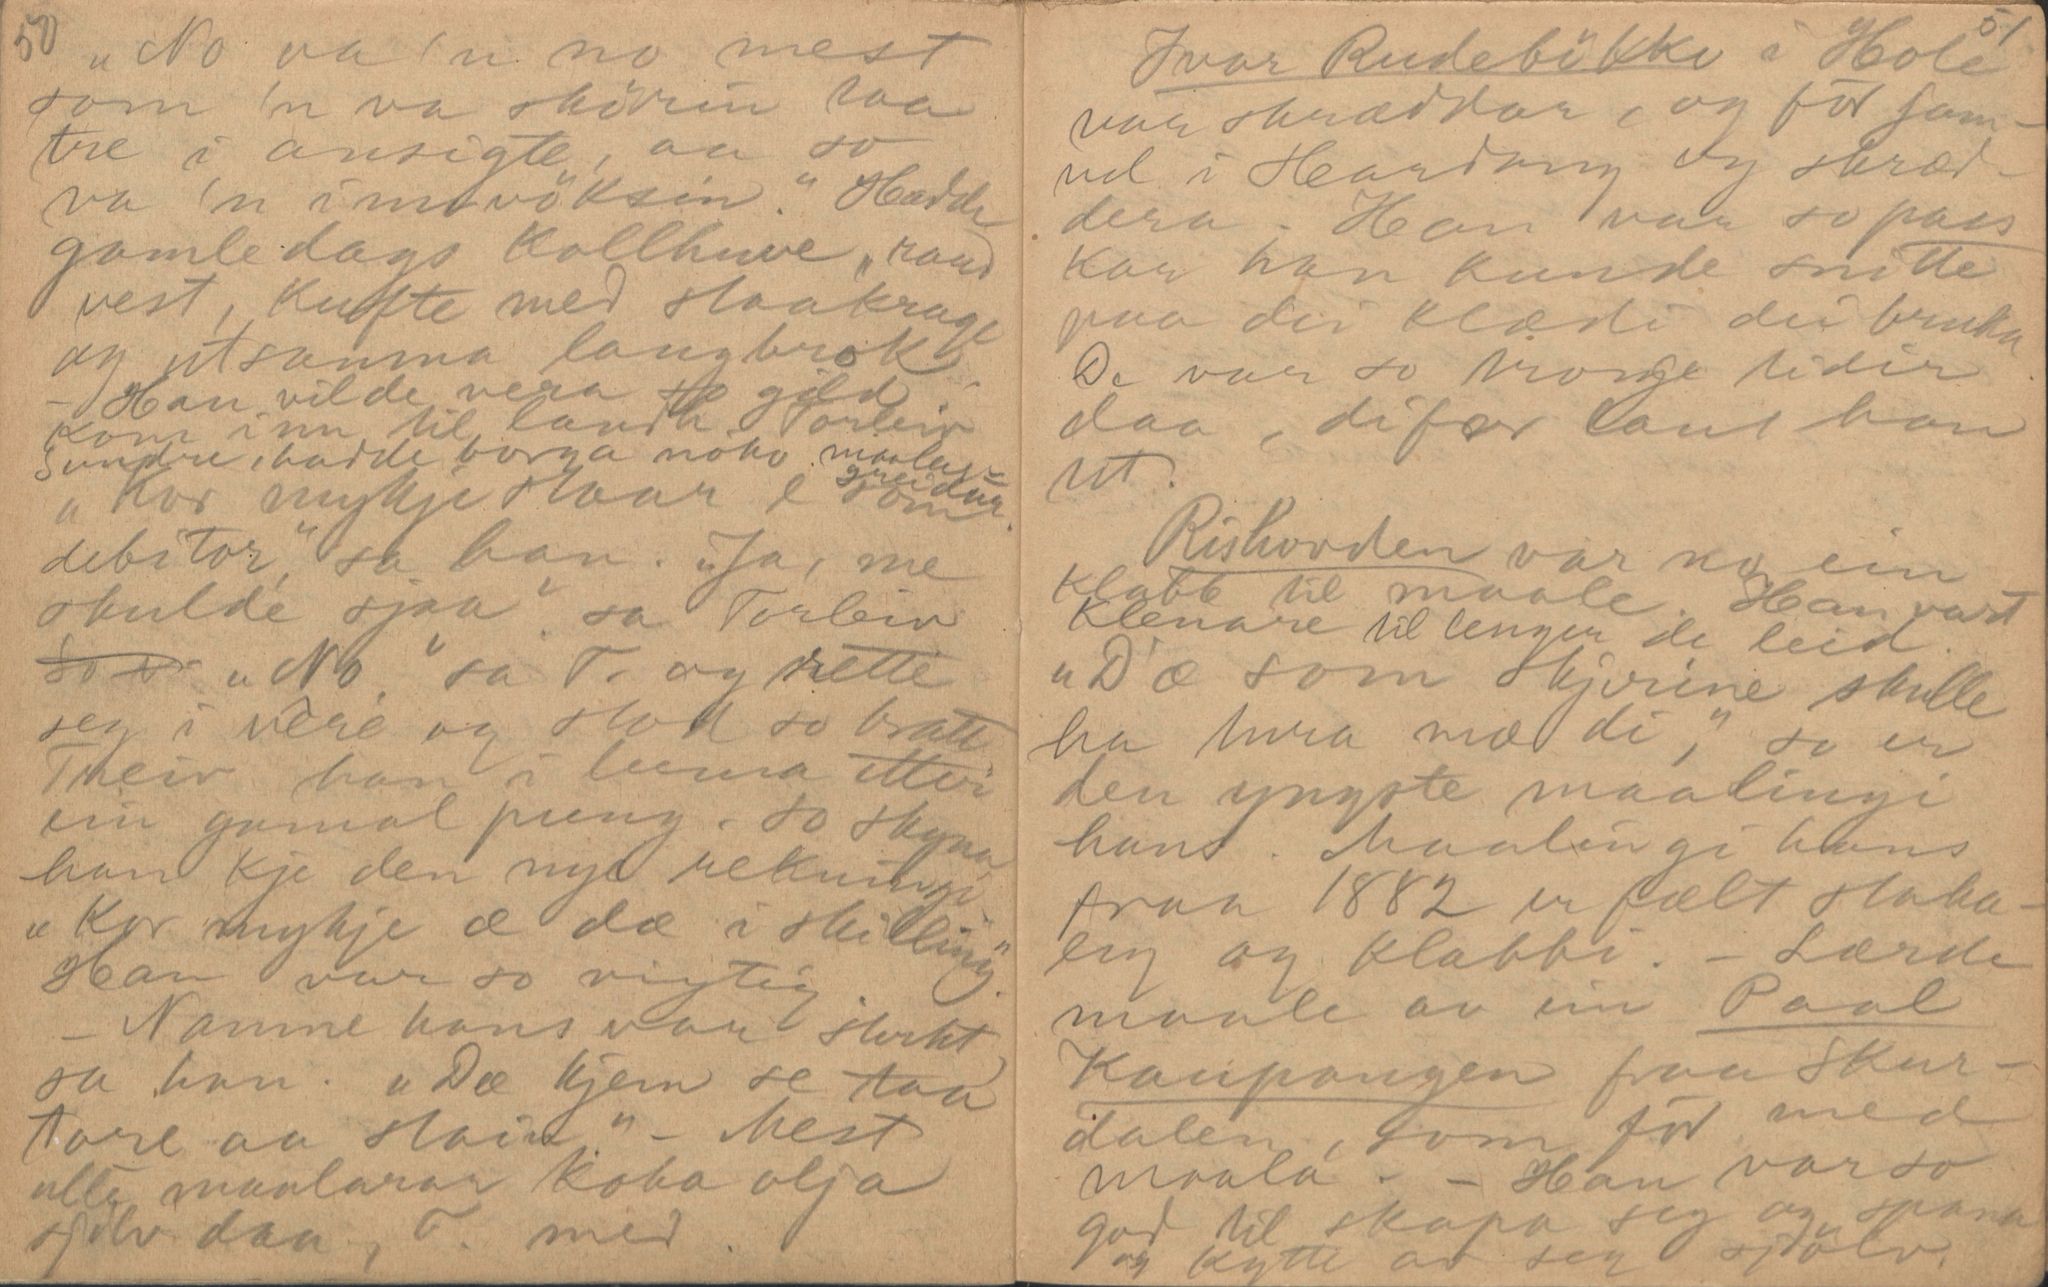 50
„No va 'n no mest
som 'n va skörin taa
tre i ansigte, aa so
va 'n innvöksin." Hadde
gamledags Kollhuve, raud
vest, Kufte med staakrage
og utsauma langbrok.
– Han vilde vera so gild.
Kom inn til landh. Torleiv
Sundre, hadde borga noko maalar-
greidur.
„Kor mykje staar e som
debitor," sa han. „Ja, me
skulde sjaa" sa Torleiv
„No," sa T. og rette
seg i vere og stod so bratt
Treiv han i lumma etter
ein gamal pung. So skyna
han kje den nye rekningi
„Kor mykje æ dæ i skilling".
Han var so vigtig.
– Namne hans var sterkt,
sa han. „Dæ kjem se taa
tore aa stein" – Mest
alle maalarar koka olja
sjölv daa, T. med.
51
Ivar Rudebökko i Hole
var skræddar, og för jam-
vel i Hardang og skræd-
dera. Han var so pass
Kar han kunde snitte
paa dei klædi dei bruka.
De var so tronge tidir
daa, difor laut han
ut.
Rishovden var no ein
Klabb til maale. Han vart
Klenare til lenger de leid.
„D'æ som skjurine skulle
ha tura mæ di," so er
den yngste maalingi
hans. Maalingi hans
fraa 1882 er fælt staka-
leg og klabbi. – Lærde
maale av ein Paal
Kaupangen fraa Skur-
dalen, som för med
maala. – Han var so
god til skapa seg og spana
og kytte av seg sjölv.